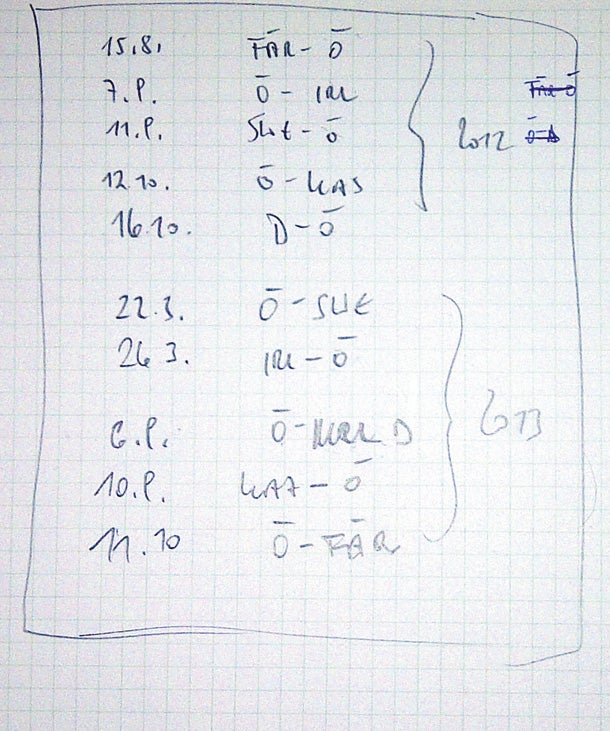 15.8. FÄR - Ö
7.9. Ö - IRL
11.9. SWE - Ö
12.10. Ö - KAS
16.10. D - Ö
2012
22.3. Ö - SWE
26.3. IRL - Ö
6.9. Ö - D
10.9. KAZ - Ö
11.10 Ö - FÄR
2013